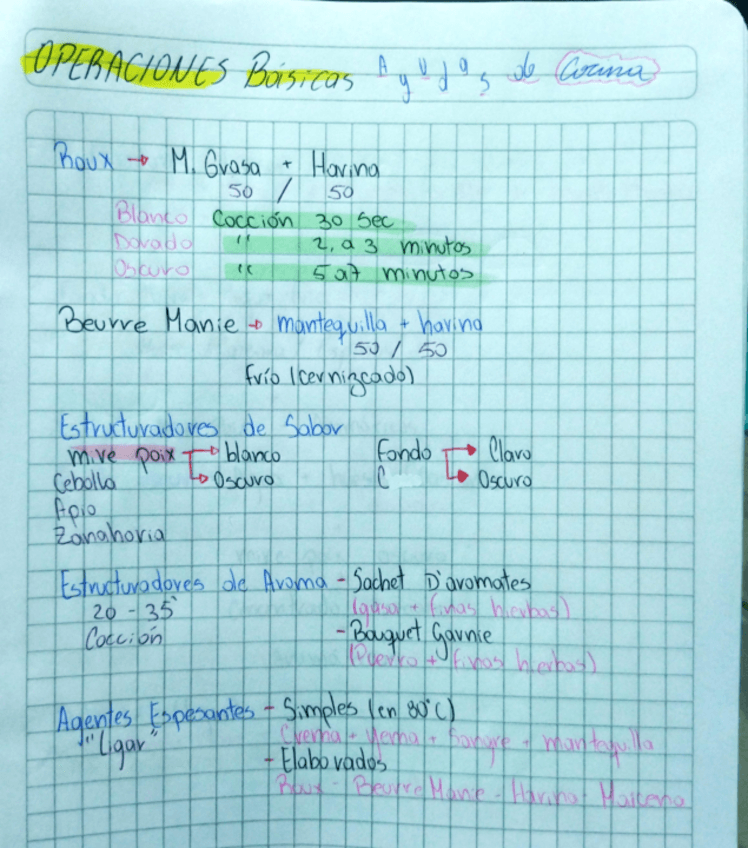 OPERACIONES Básicas Ayudas de Cocina
Roux → M. Grasa + Harina
50 / 50
Blanco Cocción 30 Sec
Dorado " 2, a 3 minutos
Oscuro " 5 a 7 minutos
Beurre Manie → mantequilla + harina
50 / 50
frío (cernizcado)
Estructuradores de Sabor
mire poix → blanco Fondo → Claro
Cebolla → Oscuro C → Oscuro
Apio
Zanahoria
Estructuradores de Aroma - Sachet D'aromates
20 - 35° (gasa + finas hierbas)
Cocción - Bouquet Garnie
(Puerro + finas hierbas)
Agentes Espesantes - Simples (en 80°C)
"Ligar" Crema + Yema + Sangre + mantequilla
- Elaborados
Roux - Beurre Manie - Harina - Maicena